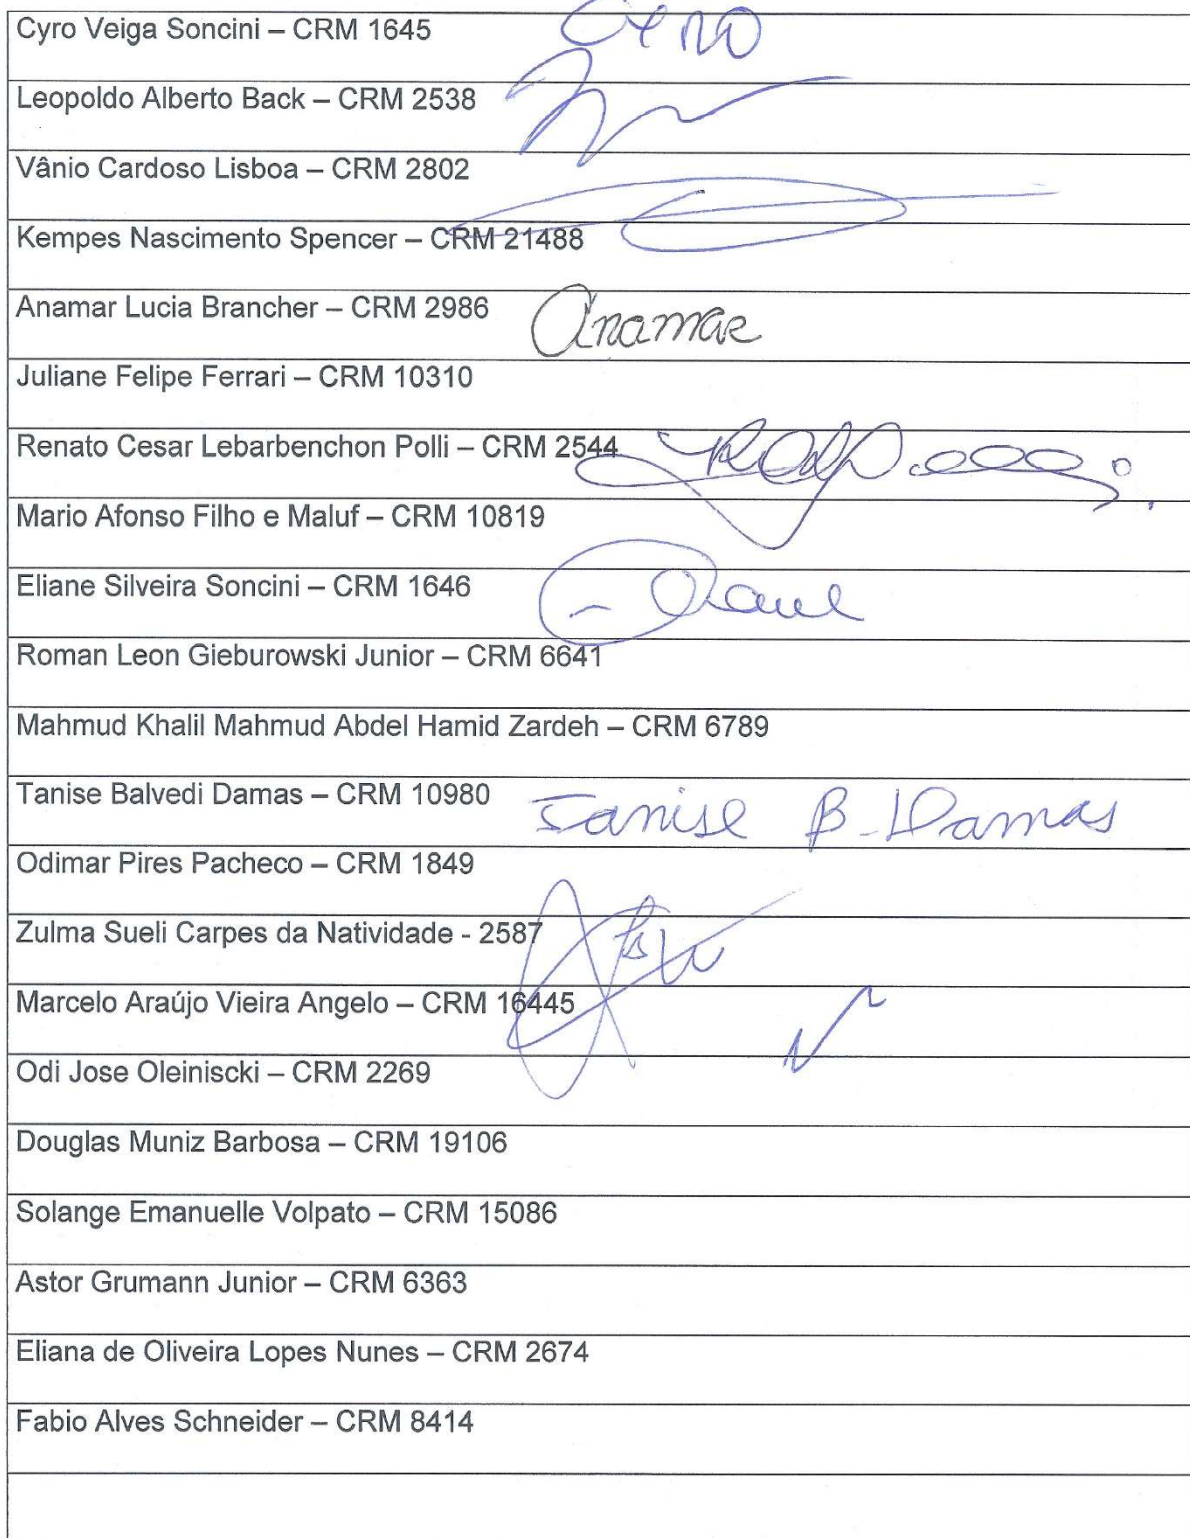 Cyro Veiga Soncini – CRM 1645 Cyro
Leopoldo Alberto Back – CRM 2538
Vânio Cardoso Lisboa – CRM 2802
Kempes Nascimento Spencer – CRM 21488
Anamar Lucia Brancher – CRM 2986 Anamar
Juliane Felipe Ferrari – CRM 10310
Renato Cesar Lebarbenchon Polli – CRM 2544
Mario Afonso Filho e Maluf – CRM 10819
Eliane Silveira Soncini – CRM 1646
Roman Leon Gieburowski Junior – CRM 6641
Mahmud Khalil Mahmud Abdel Hamid Zardeh – CRM 6789
Tanise Balvedi Damas – CRM 10980 Tanise B. Damas
Odimar Pires Pacheco – CRM 1849
Zulma Sueli Carpes da Natividade - 2587
Marcelo Araújo Vieira Angelo – CRM 16445
Odi Jose Oleiniscki – CRM 2269
Douglas Muniz Barbosa – CRM 19106
Solange Emanuelle Volpato – CRM 15086
Astor Grumann Junior – CRM 6363
Eliana de Oliveira Lopes Nunes – CRM 2674
Fabio Alves Schneider – CRM 8414